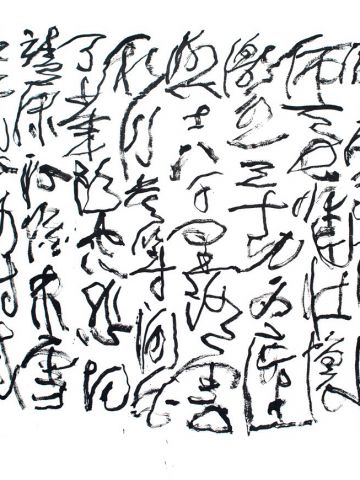 仰天長嘯壯懷
激烈三十功名塵
與土八千里路雲
和月莫等閒白
了少年頭空悲切
靖康恥猶未雪